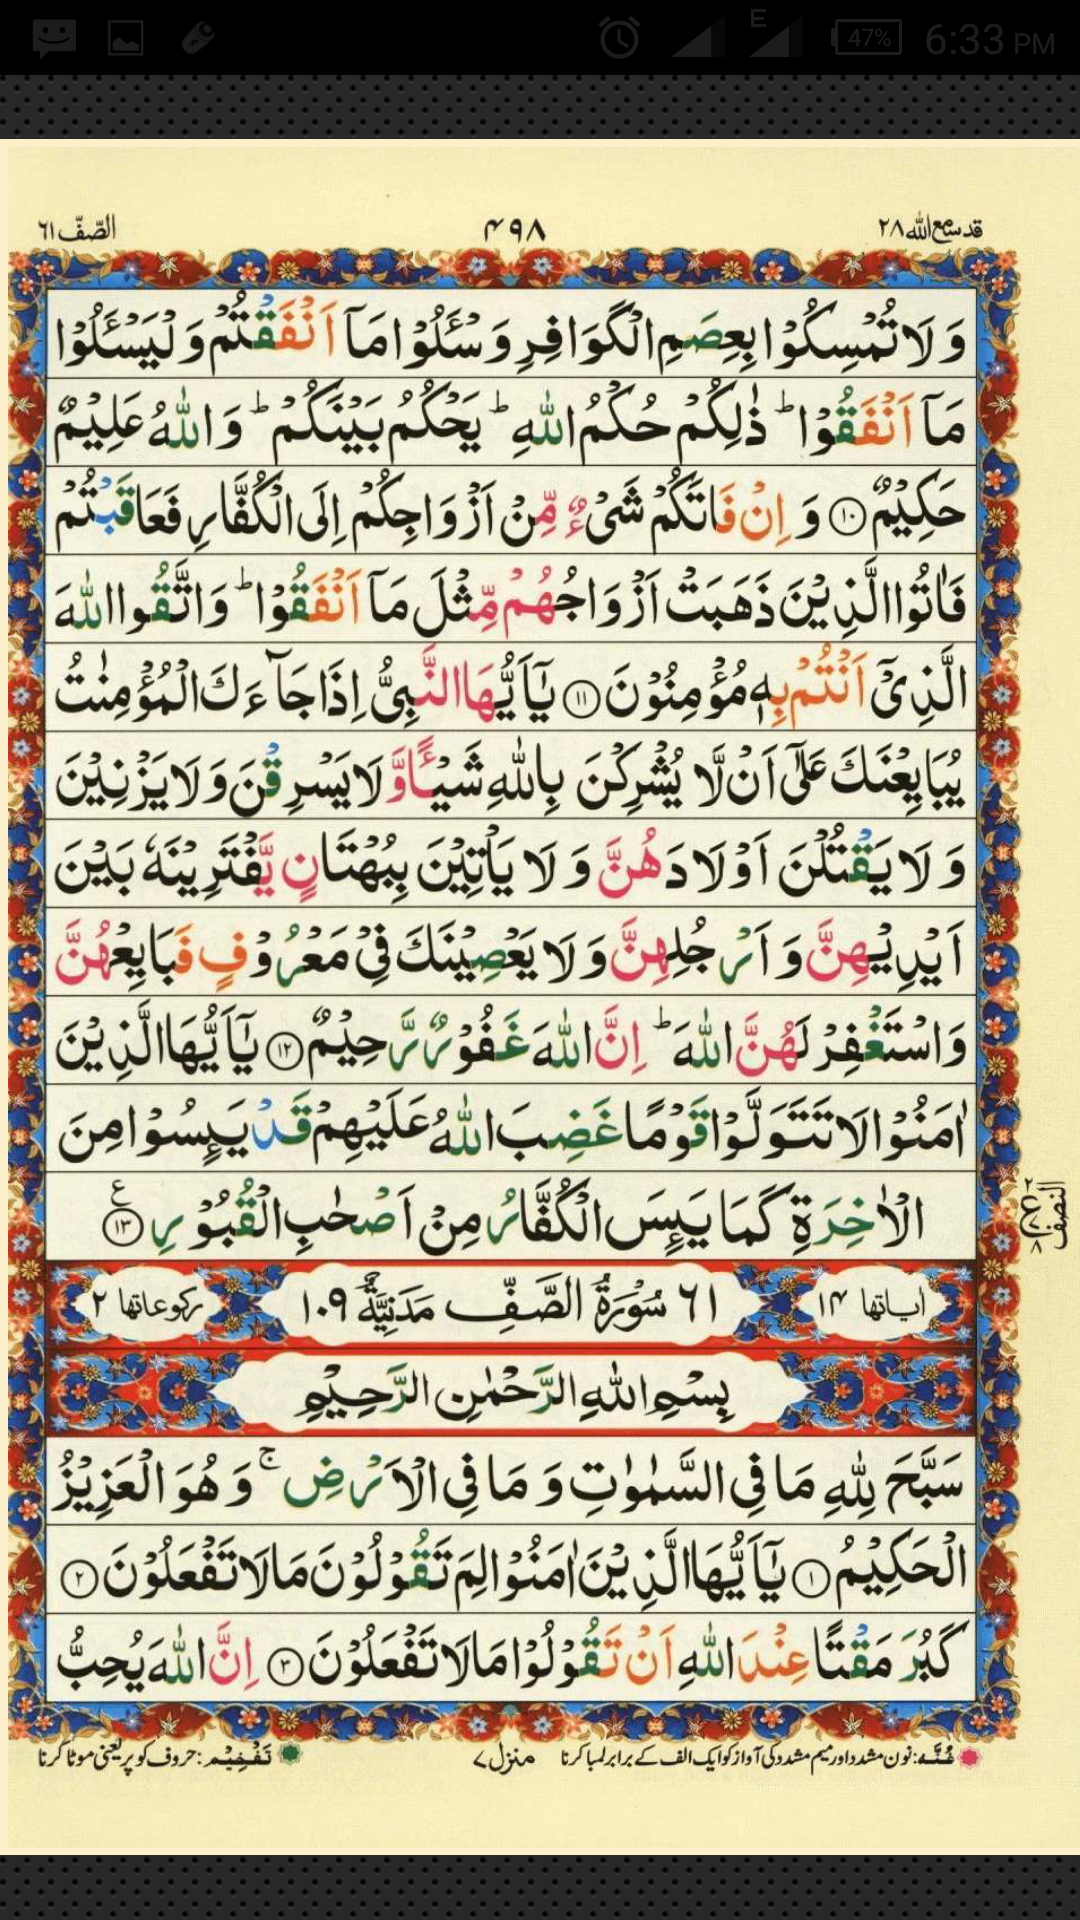 47% 6:33 PM
E
قد سمع الله ٢٨ ۴۹۸ الصّفّ ٦١
وَ لَا تُمْسِكُوْا بِعِصَمِ الْكَوَافِرِ وَ سْـَٔلُوْا مَاۤ اَنْفَقْتُمْ وَ لْيَسْـَٔلُوْا
مَاۤ اَنْفَقُوْا ؕ ذٰلِكُمْ حُكْمُ اللّٰهِ ؕ يَحْكُمُ بَيْنَكُمْ ؕ وَ اللّٰهُ عَلِيْمٌ
حَكِيْمٌ ﴿١٠﴾ وَ اِنْ فَاتَكُمْ شَيْءٌ مِّنْ اَزْوَاجِكُمْ اِلَى الْكُفَّارِ فَعَاقَبْتُمْ
فَاٰتُوا الَّذِيْنَ ذَهَبَتْ اَزْوَاجُهُمْ مِّثْلَ مَاۤ اَنْفَقُوْا ؕ وَ اتَّقُوا اللّٰهَ
الَّذِيْۤ اَنْتُمْ بِهٖ مُؤْمِنُوْنَ ﴿١١﴾ يٰۤاَيُّهَا النَّبِيُّ اِذَا جَآءَكَ الْمُؤْمِنٰتُ
يُبَايِعْنَكَ عَلٰۤى اَنْ لَّا يُشْرِكْنَ بِاللّٰهِ شَيْـًٔا وَّ لَا يَسْرِقْنَ وَ لَا يَزْنِيْنَ
وَ لَا يَقْتُلْنَ اَوْلَادَهُنَّ وَ لَا يَاْتِيْنَ بِبُهْتَانٍ يَّفْتَرِيْنَهٗ بَيْنَ
اَيْدِيْهِنَّ وَ اَرْجُلِهِنَّ وَ لَا يَعْصِيْنَكَ فِيْ مَعْرُوْفٍ فَبَايِعْهُنَّ
وَ اسْتَغْفِرْ لَهُنَّ اللّٰهَ ؕ اِنَّ اللّٰهَ غَفُوْرٌ رَّحِيْمٌ ﴿١٢﴾ يٰۤاَيُّهَا الَّذِيْنَ
اٰمَنُوْا لَا تَتَوَلَّوْا قَوْمًا غَضِبَ اللّٰهُ عَلَيْهِمْ قَدْ يَىِٕسُوْا مِنَ
الْاٰخِرَةِ كَمَا يَىِٕسَ الْكُفَّارُ مِنْ اَصْحٰبِ الْقُبُوْرِ ﴿١٣﴾ ع
النصف
اٰياتها ١۴ ٦١ سُوْرَةُ الصَّفِّ مَدَنِيَّةٌ ١٠٩ ركوعاتها ٢
بِسْمِ اللّٰهِ الرَّحْمٰنِ الرَّحِيْمِ
سَبَّحَ لِلّٰهِ مَا فِي السَّمٰوٰتِ وَ مَا فِي الْاَرْضِ ۚ وَ هُوَ الْعَزِيْزُ
الْحَكِيْمُ ﴿١﴾ يٰۤاَيُّهَا الَّذِيْنَ اٰمَنُوْا لِمَ تَقُوْلُوْنَ مَا لَا تَفْعَلُوْنَ ﴿٢﴾
كَبُرَ مَقْتًا عِنْدَ اللّٰهِ اَنْ تَقُوْلُوْا مَا لَا تَفْعَلُوْنَ ﴿٣﴾ اِنَّ اللّٰهَ يُحِبُّ
غُنَّه: نون مشدد اور میم مشدد کی آواز کو ایک الف کے برابر لمبا کرنا منزل ۷ تَفْخِيْم: حروف کو پُر یعنی موٹا کرنا